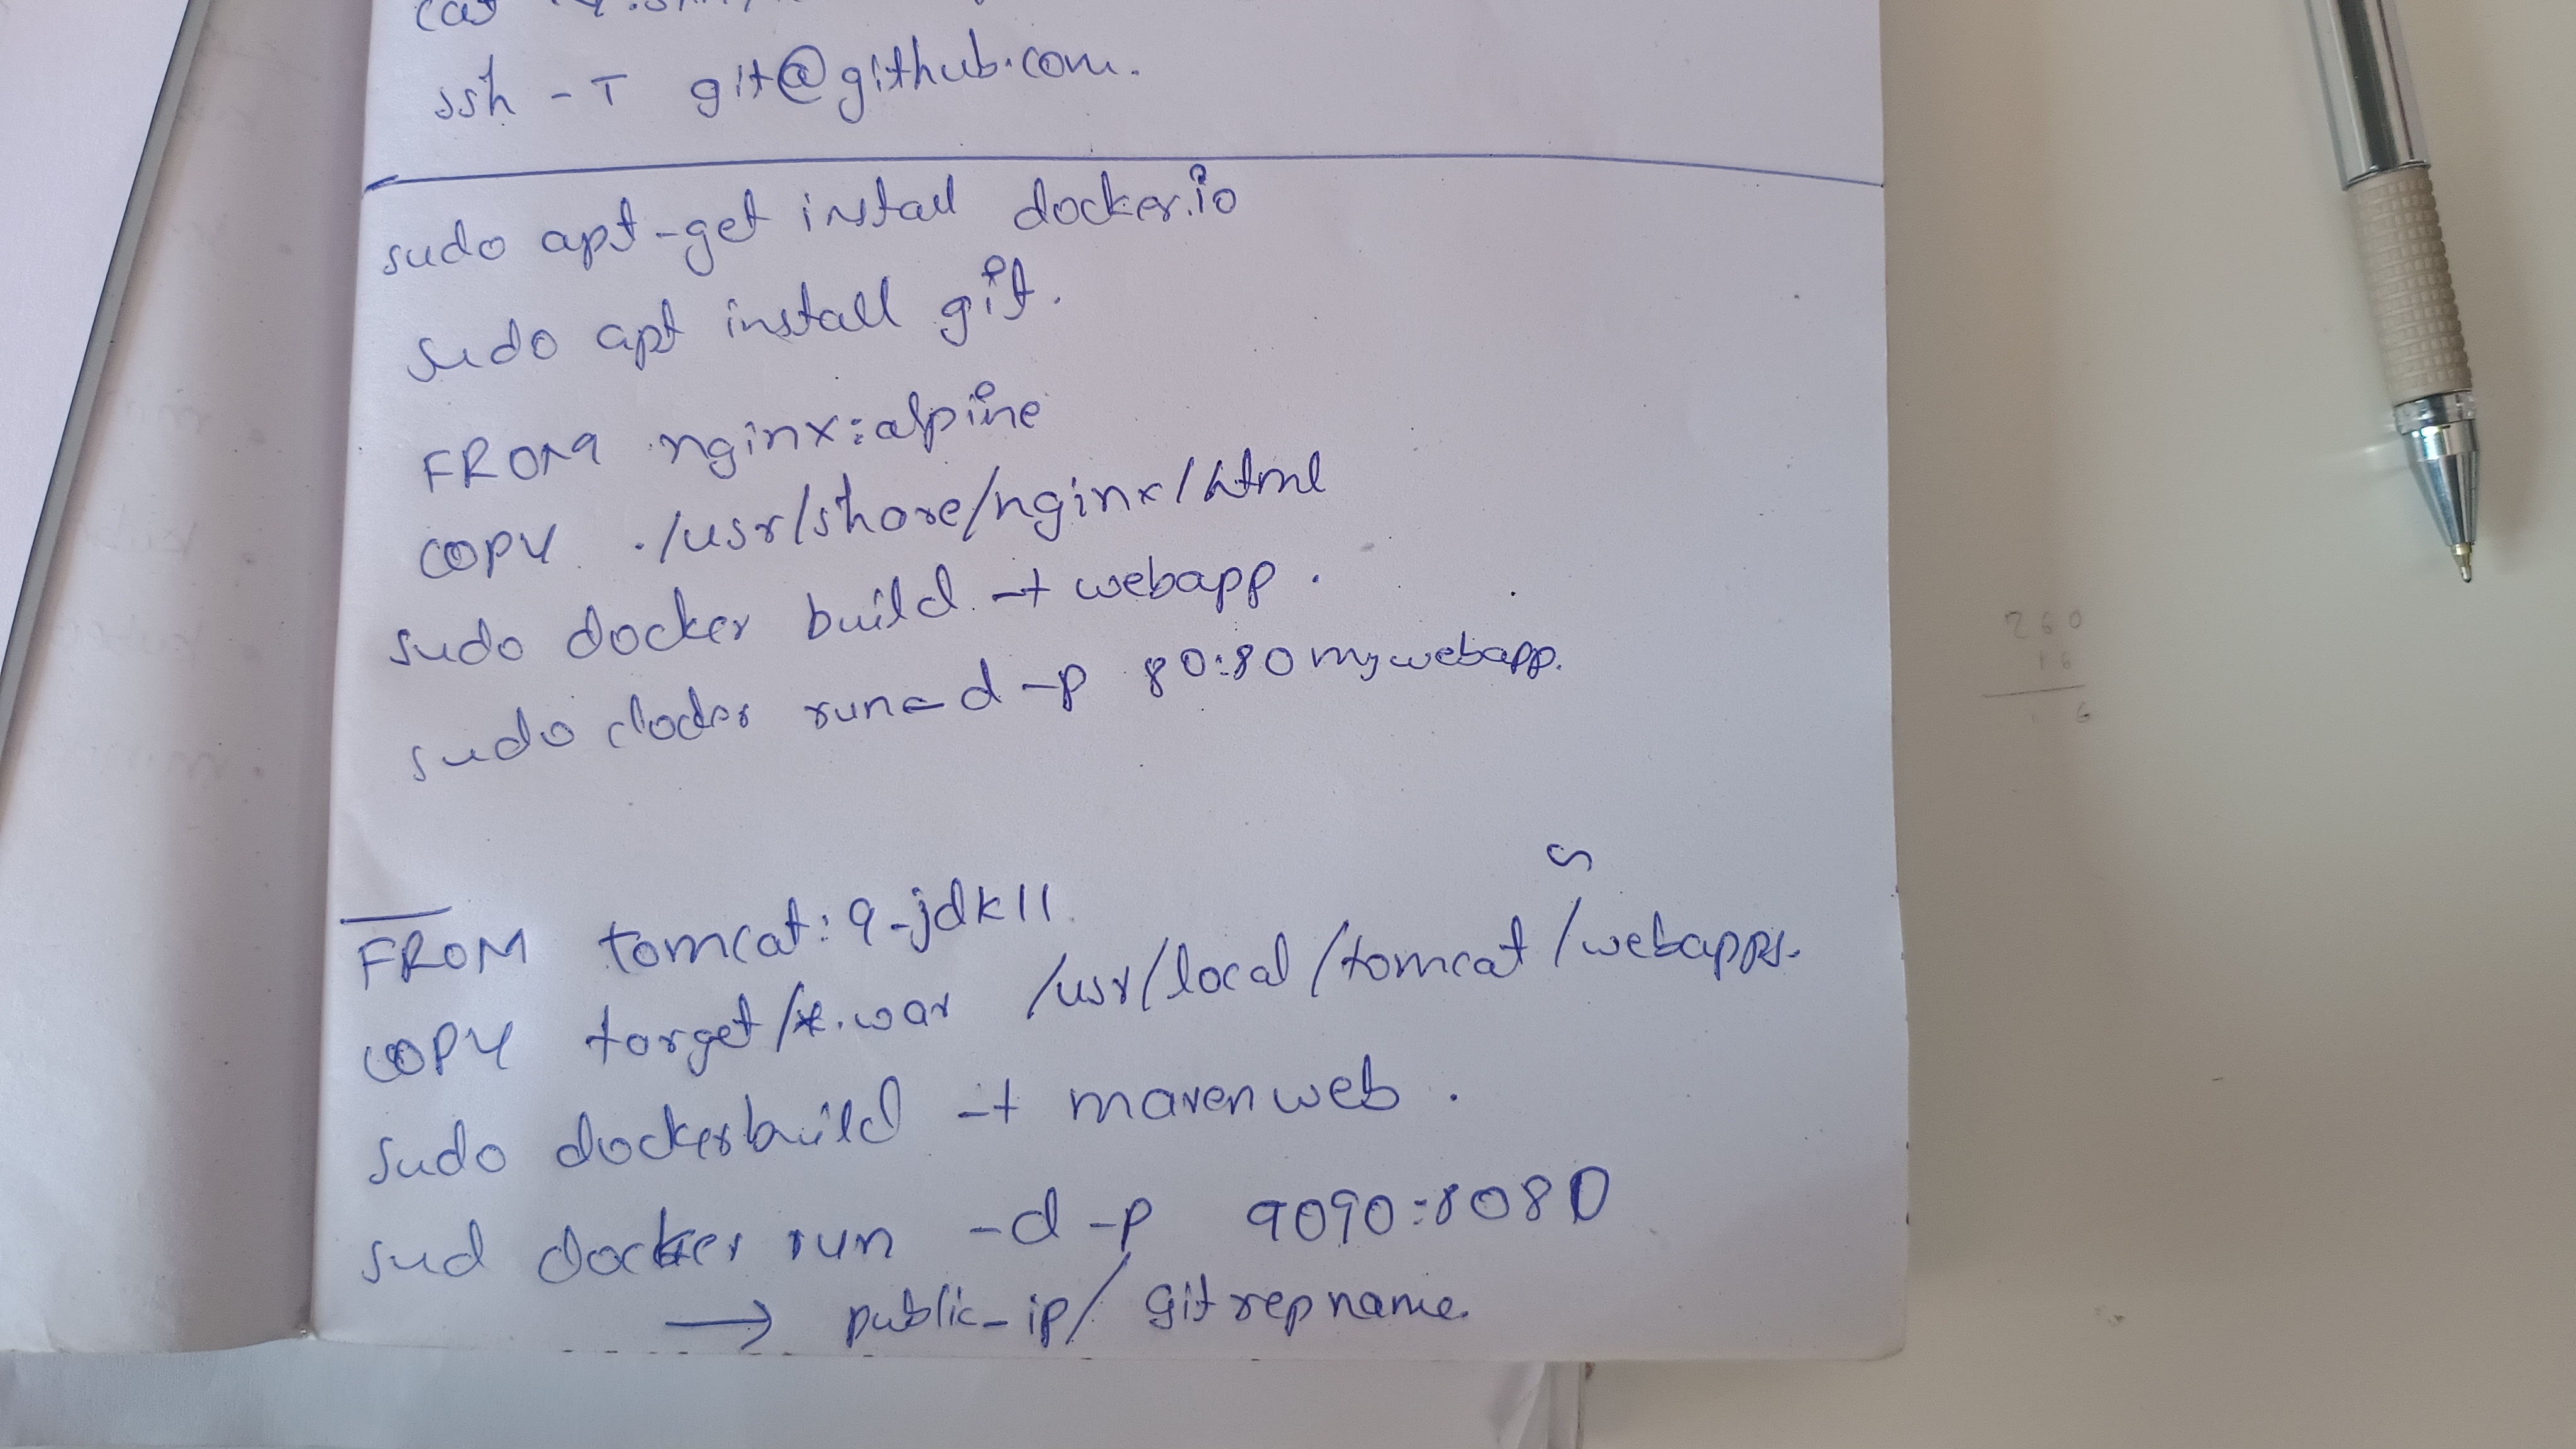 ssh -T git@github.com.
sudo apt-get install docker.io
sudo apt install git.
FROM nginx:alpine
COPY . /usr/share/nginx/html
sudo docker build -t webapp .
sudo docker run -d -p 80:80 mywebapp.
FROM tomcat:9-jdk11
COPY target/*.war /usr/local/tomcat/webapps.
sudo dockerbuild -t mavenweb .
sud docker run -d -p 9090:8080
→ public-ip/gitrepname.
260
16
6